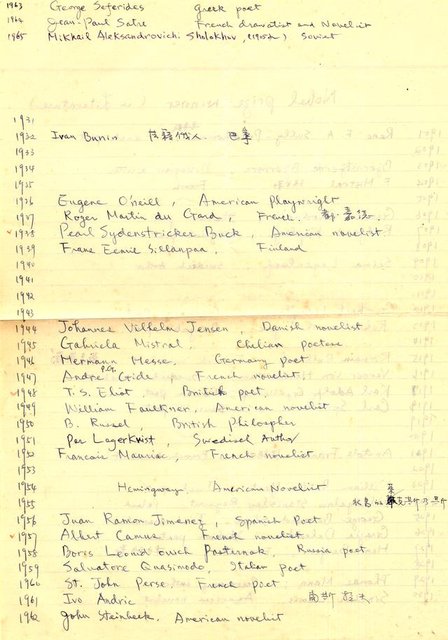 1963 George Seferides Greek poet
1964 Jean-Paul Satre French dramatist and Novelist
1965 Mikhail Aleksandrovich Sholokhov, (1905生) Soviet
1931
1932 Ivan Bunin
1933
1934
1935
1936 Eugene O'neill, American Playwright
1937 Roger Martin du Gard, French.
1938 Pearl Sydenstricker Buck, American novelist
1939 Frans Eemie Sillanpaa, Finland
1940
1941
1942
1943
1944 Johannes Vilhelm Jensen, Danish novelist
1945 Gabriela Mistral, Chilian poetess
1946 Hermann Hesse, Germany poet
1947 André P.G. Gide French novelist
1948 T. S. Eliot British poet,
1949 William Faulkner, American novelist
1950 B. Russel, British Philospher
1951 Par Lagerkvist, Swedisch Author
1952 Francois Mauriac, French novelist
1953
1954 Hemingway American Novelist
1955
1956 Juan Ramon Jimenez, Spanish Poet
1957 Albert Camus French novelist
1958 Boris Leonid Pasternak, Russia poet
1959 Salvatore Quasimodo, Italian poet
1960 St. John Perse French Poet
1961 Ivo Andric 南斯拉夫
1962 John Steinbeck. American novelist